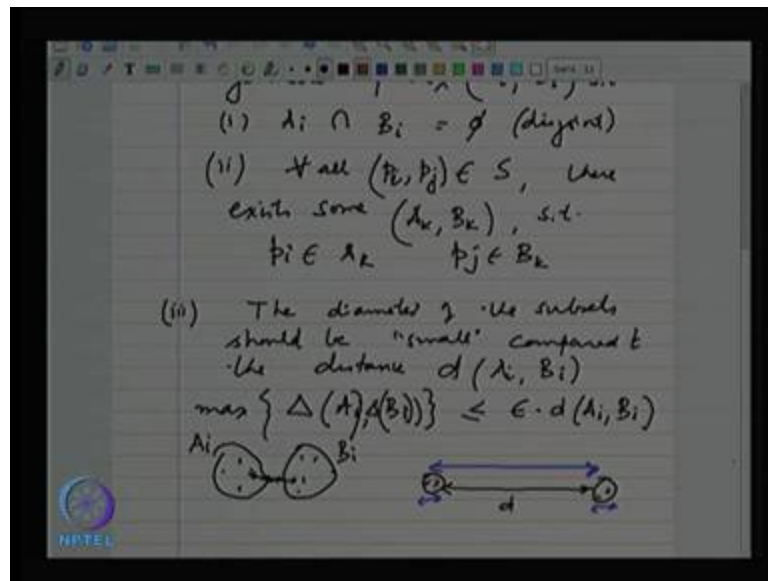 (i) Ai ∩ Bi = φ (disjoint)
(ii) ∀ all (pi, pj) ∈ S, there
exists some (Ak, Bk), s.t.
pi ∈ Ak pj ∈ Bk
(iii) The diameter of the subsets
should be "small" compared t
the distance d(Ai, Bi)
max { Δ(Ai), Δ(Bi))} ≤ ε·d(Ai, Bi)
Ai Bi
d
NPTEL